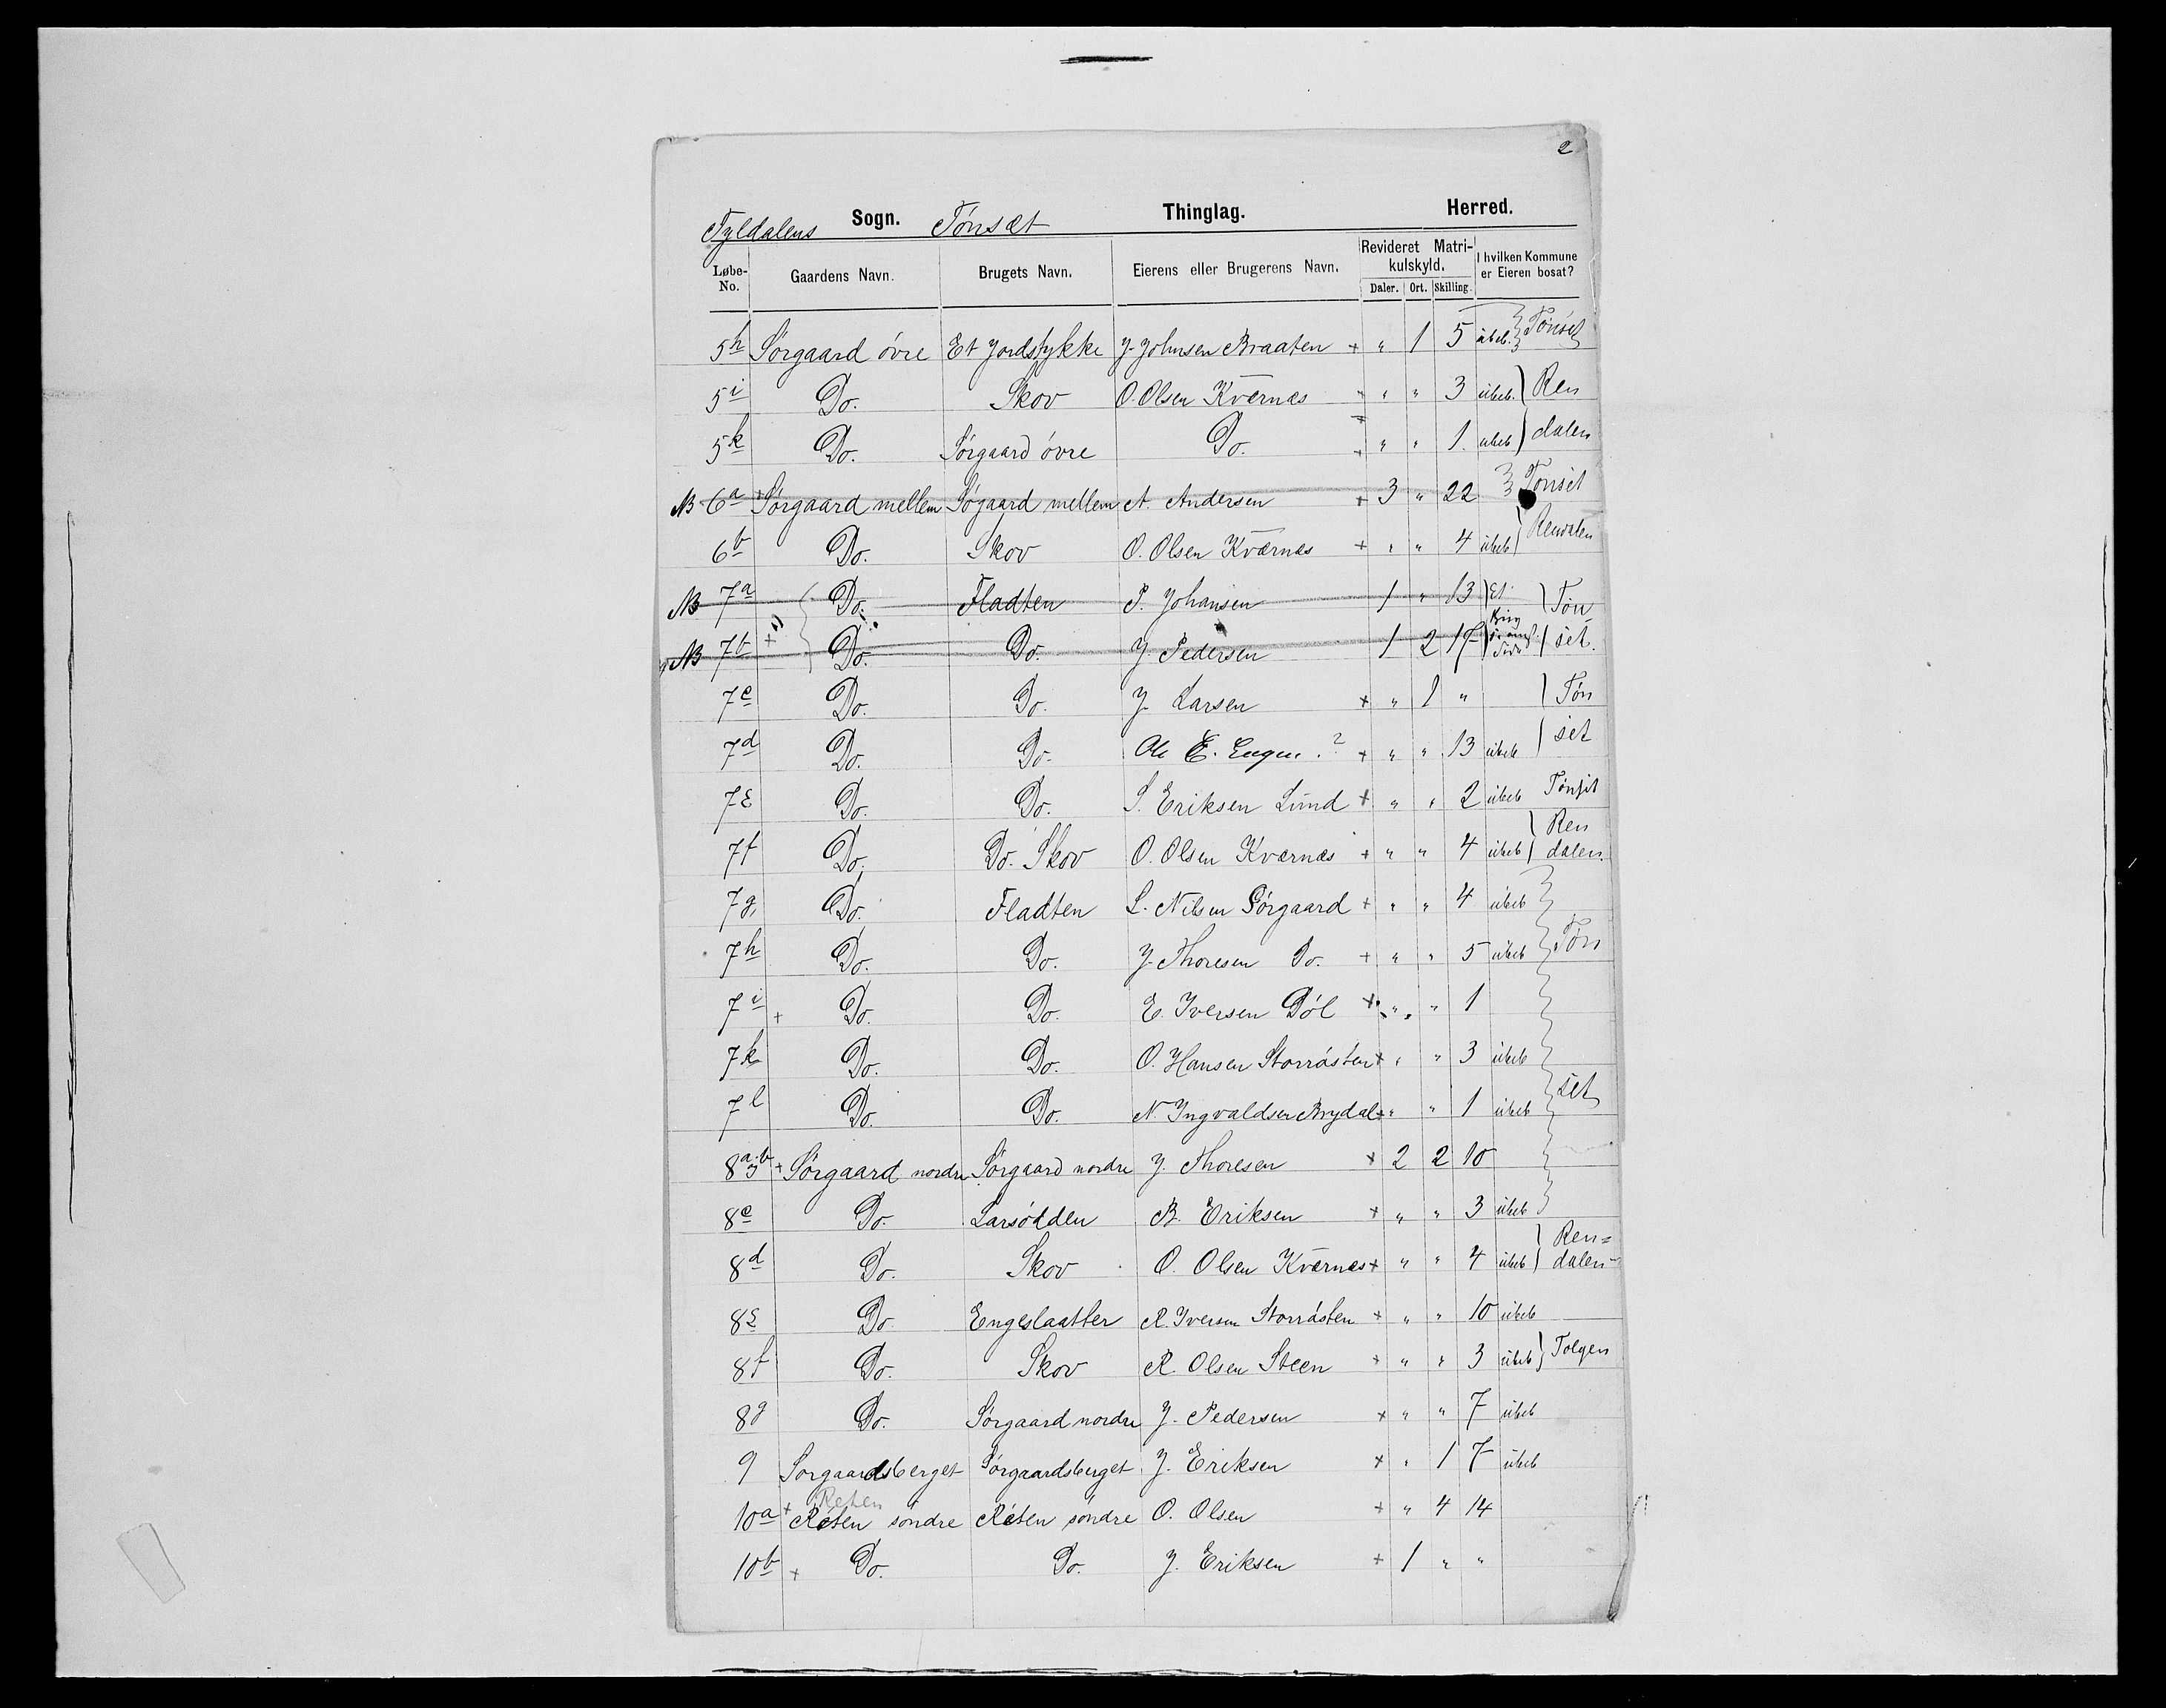 2
Tyldalens Sogn. Tönsæt Thinglag. Herred.
Løbe-No. Gaardens Navn. Brugets Navn. Eierens eller Brugerens Navn. Revideret Matrikulskyld. Daler. Ort. Skilling. I hvilken Kommune er Eieren bosat?
5h Sörgaard övre Et Jordstykke J. Johnsen Braaten + " 1 5 ubeb. Tönset
5i Do. Skov O. Olsen Kværnæs + " " 3 ubeb. Ren
5k Do. Sörgaard övre Do. + " " 1. ubeb dalen
NB 6a + Sörgaard mellem Sögaard mellem A. Andersen + 3 " 22 Tönset
6b Do. Skov O. Olsen Kværnæs + " " 4 ubeb Rendalen
NB 7a Do. Fladten P. Johansen 1 " 13 Et Tön
NB 7b + 1) Do. Do. J. Pedersen 1 2 17 set.
7c Do. Do. J. Larsen + " 1 " Tön
7d Do. Do. Ole E. Engen.? + " " 13 ubeb set
7e Do. Do. S. Eriksen Lund + " " 2 ubeb Tönset
7f Do. Do. Skov O. Olsen Kværnæs + " " 4 ubeb Ren dalen.
7g Do. Fladten L. Nilsen Sörgaard + " " 4 ubeb
7h Do. Do. J. Thoresen Do. + " " 5 ubeb Tön
7i + Do. Do. E. Iversen Döl + " " 1
7k Do. Do. O. Hansen Storrösten + " " 3 ubeb
7l Do. Do. N. Ingvaldsen Brydal + " " 1 ubeb set
8a.b + Sörgaard nordre Sörgaard nordre J. Thoresen + 2 2 10
8c Do. Larsödden B. Eriksen + " " 3 ubeb
8d Do. Skov O. Olsen Kværnæs + " " 4 ubeb Ren=dalen
8e Do. Engeslaatter R. Iversen Storrösten + " " 10 ubeb
8f Do. Skov R. Olsen Steen + " " 3 ubeb Tolgen
8g Do. Sörgaard nordre J. Pedersen + " " 7 ubeb
9 Sörgaardsberget Sörgaardsberget J. Eriksen + " 1 7 ubeb
Reten
10a + Réten söndre Réten söndre O. Olsen + " 4 14
10b + Do. Do. J. Eriksen + 1 " "